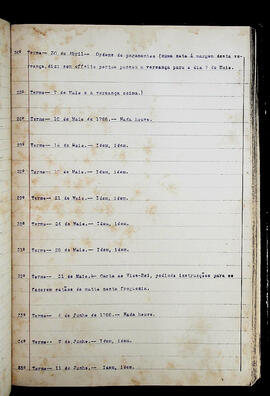 Termo-- 30 de Abril-- Ordens de pagamentos (numa nota á margem desta ve-
reança, diz: sem effeito porque passou a vereança para o dia 7 de Maio.
Termo-- 7 de Maio e a vereança acima.)
Termo-- 10 de Maio de 1788.-- Nada houve.
Termo-- 14 de Maio.-- Idem, idem.
Termo-- de Maio.-- Idem, idem.
Termo-- 21 de Maio.-- Idem, idem.
Termo-- 24 de Maio.-- Idem, idem.
Termo-- 28 de Maio.-- Idem, idem.
Termo-- 31 de Maio.-- Carta ao Vice-Rei, pedindo instrucções para se
fazerem de nesta freguezia.
Termo-- 4 de Junho de 1788.-- Nada houve.
Termo-- de Junho.-- Idem, idem.
Termo-- 11 de Junho.-- Idem, idem.